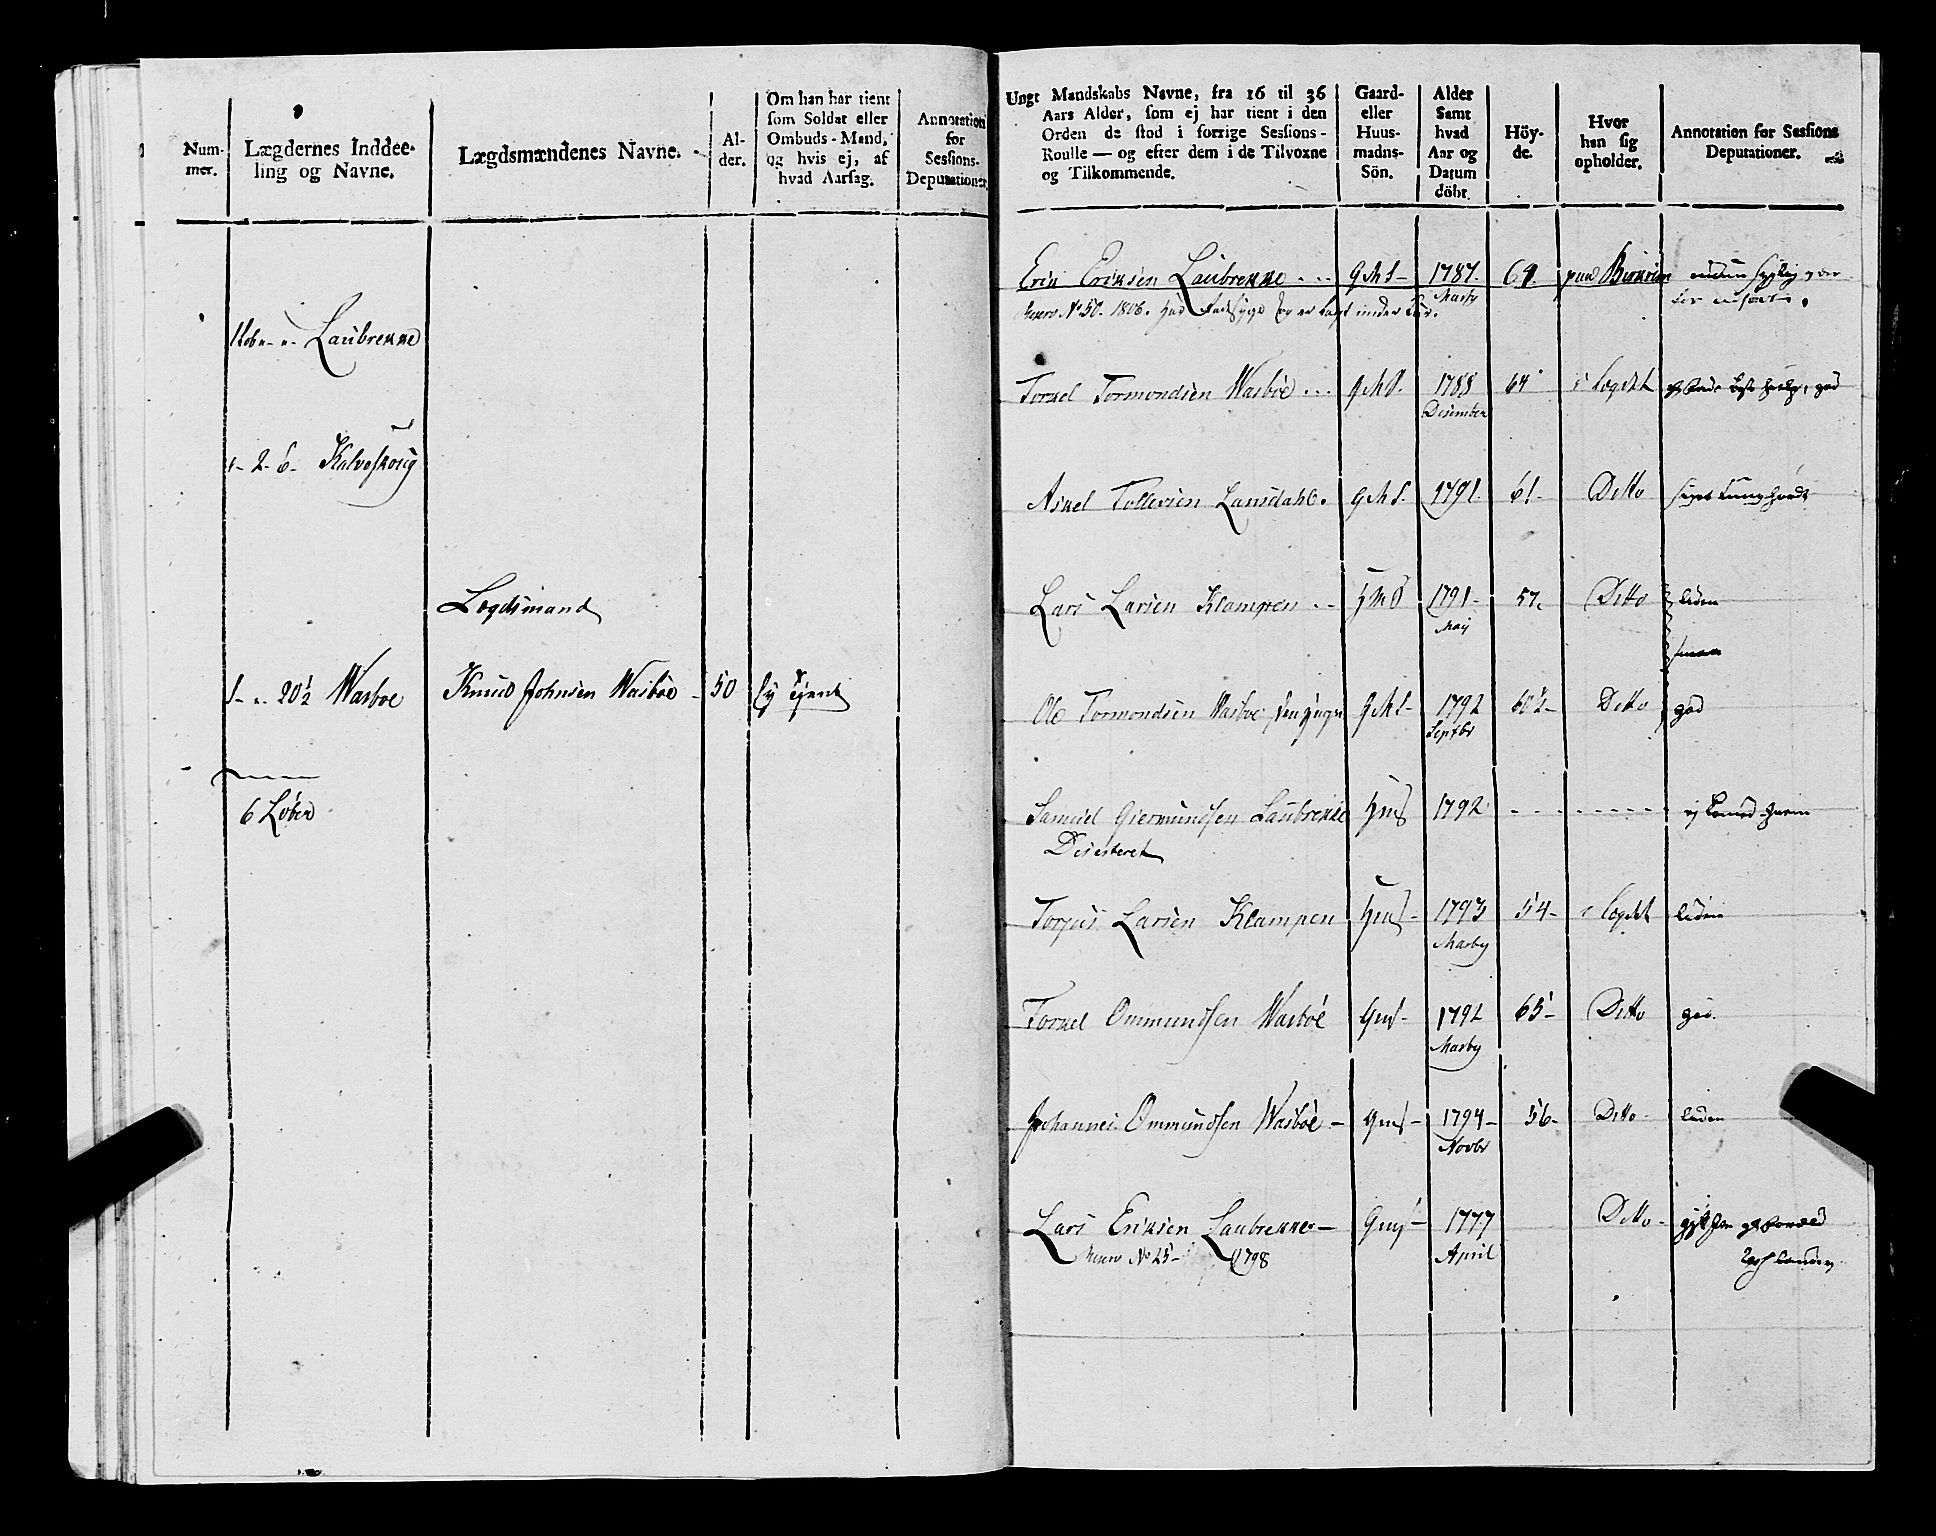 Num-
mer.
Lægdernes Inddee-
ling og Navne.
Lægdsmændenes Navne.
Al-
der.
Om han har tient
som Soldat eller
Ombuds-Mand,
og hvis ej, af
hvad Aarsag.
Annotation
for
Sessions-
Deputationer.
Laubrekke
2 - 6 - Kalveskoug
Lægdsmand
1 - " - 20½ Wasboe Knud Johnsen Wasboe - 50 Ej tjent
6 Løber
Ungt Mandskabs Navne, fra 16 til 36
Aars Alder, som ej har tient i den
Orden de stod i forrige Sessions-
Roulle — og efter dem i de Tilvoxne
og Tilkommende.
Gaard-
eller
Huus-
madns-
Sön.
Alder
Samt
hvad
Aar og
Datum
döbt.
Höy-
de.
Hvor
han sig
opholder.
Annotation for Sessions
Deputationer.
Erik Eriksen Laubrekke ... G M S - 1787.
Marty
No 50. 1806. har og er lagt under Cur.
Torkel Tormondsen Wasboe ... G M S. 1788 64 i Lægdet
Desember
Askel Tollevsen Lansdahl. G M S. 1791. 61. Ditto
Lars Larsen Klampen - - H M S 1791 - 57. Ditto liden
Maij
Ole Tormondsen Wasboe G M S - 1792 60½ - Ditto god
Septbr
Samuel Giermundsen Laubrekke HmS 1792 - - - - - - - -
Deserteret
Torjus Larsen Klampen HmS - 1793 54 - i Lægdet liden
Marty
Torkel Ommundsen Wasboe GmS - 1792 65 - Ditto god.
Marty
Johannes Ommundsen Wasboe - GmS - 1794 - 56 - Ditto - liden
Novbr
Lars Eriksen Laubrekke - GmS - 1777 Ditto -
No 25 - 1798 April